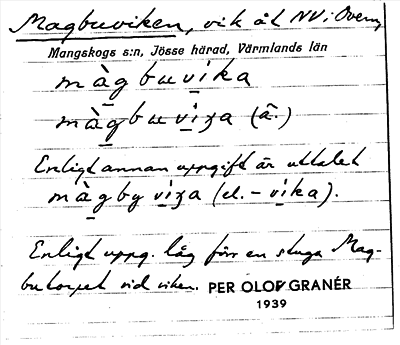 Magbuviken, vik åt NV i Övern,
Mangskogs s:n, Jösse härad, Värmlands län
màgbuvika
màgbuviʒa (ã.)
Enligt annan uppgift är uttalet
màgbyviʒa (el. -vika).
Enligt uppg. låg förr en stuga Mag-
butorpet vid viken. PER OLOF GRANÉR
1939